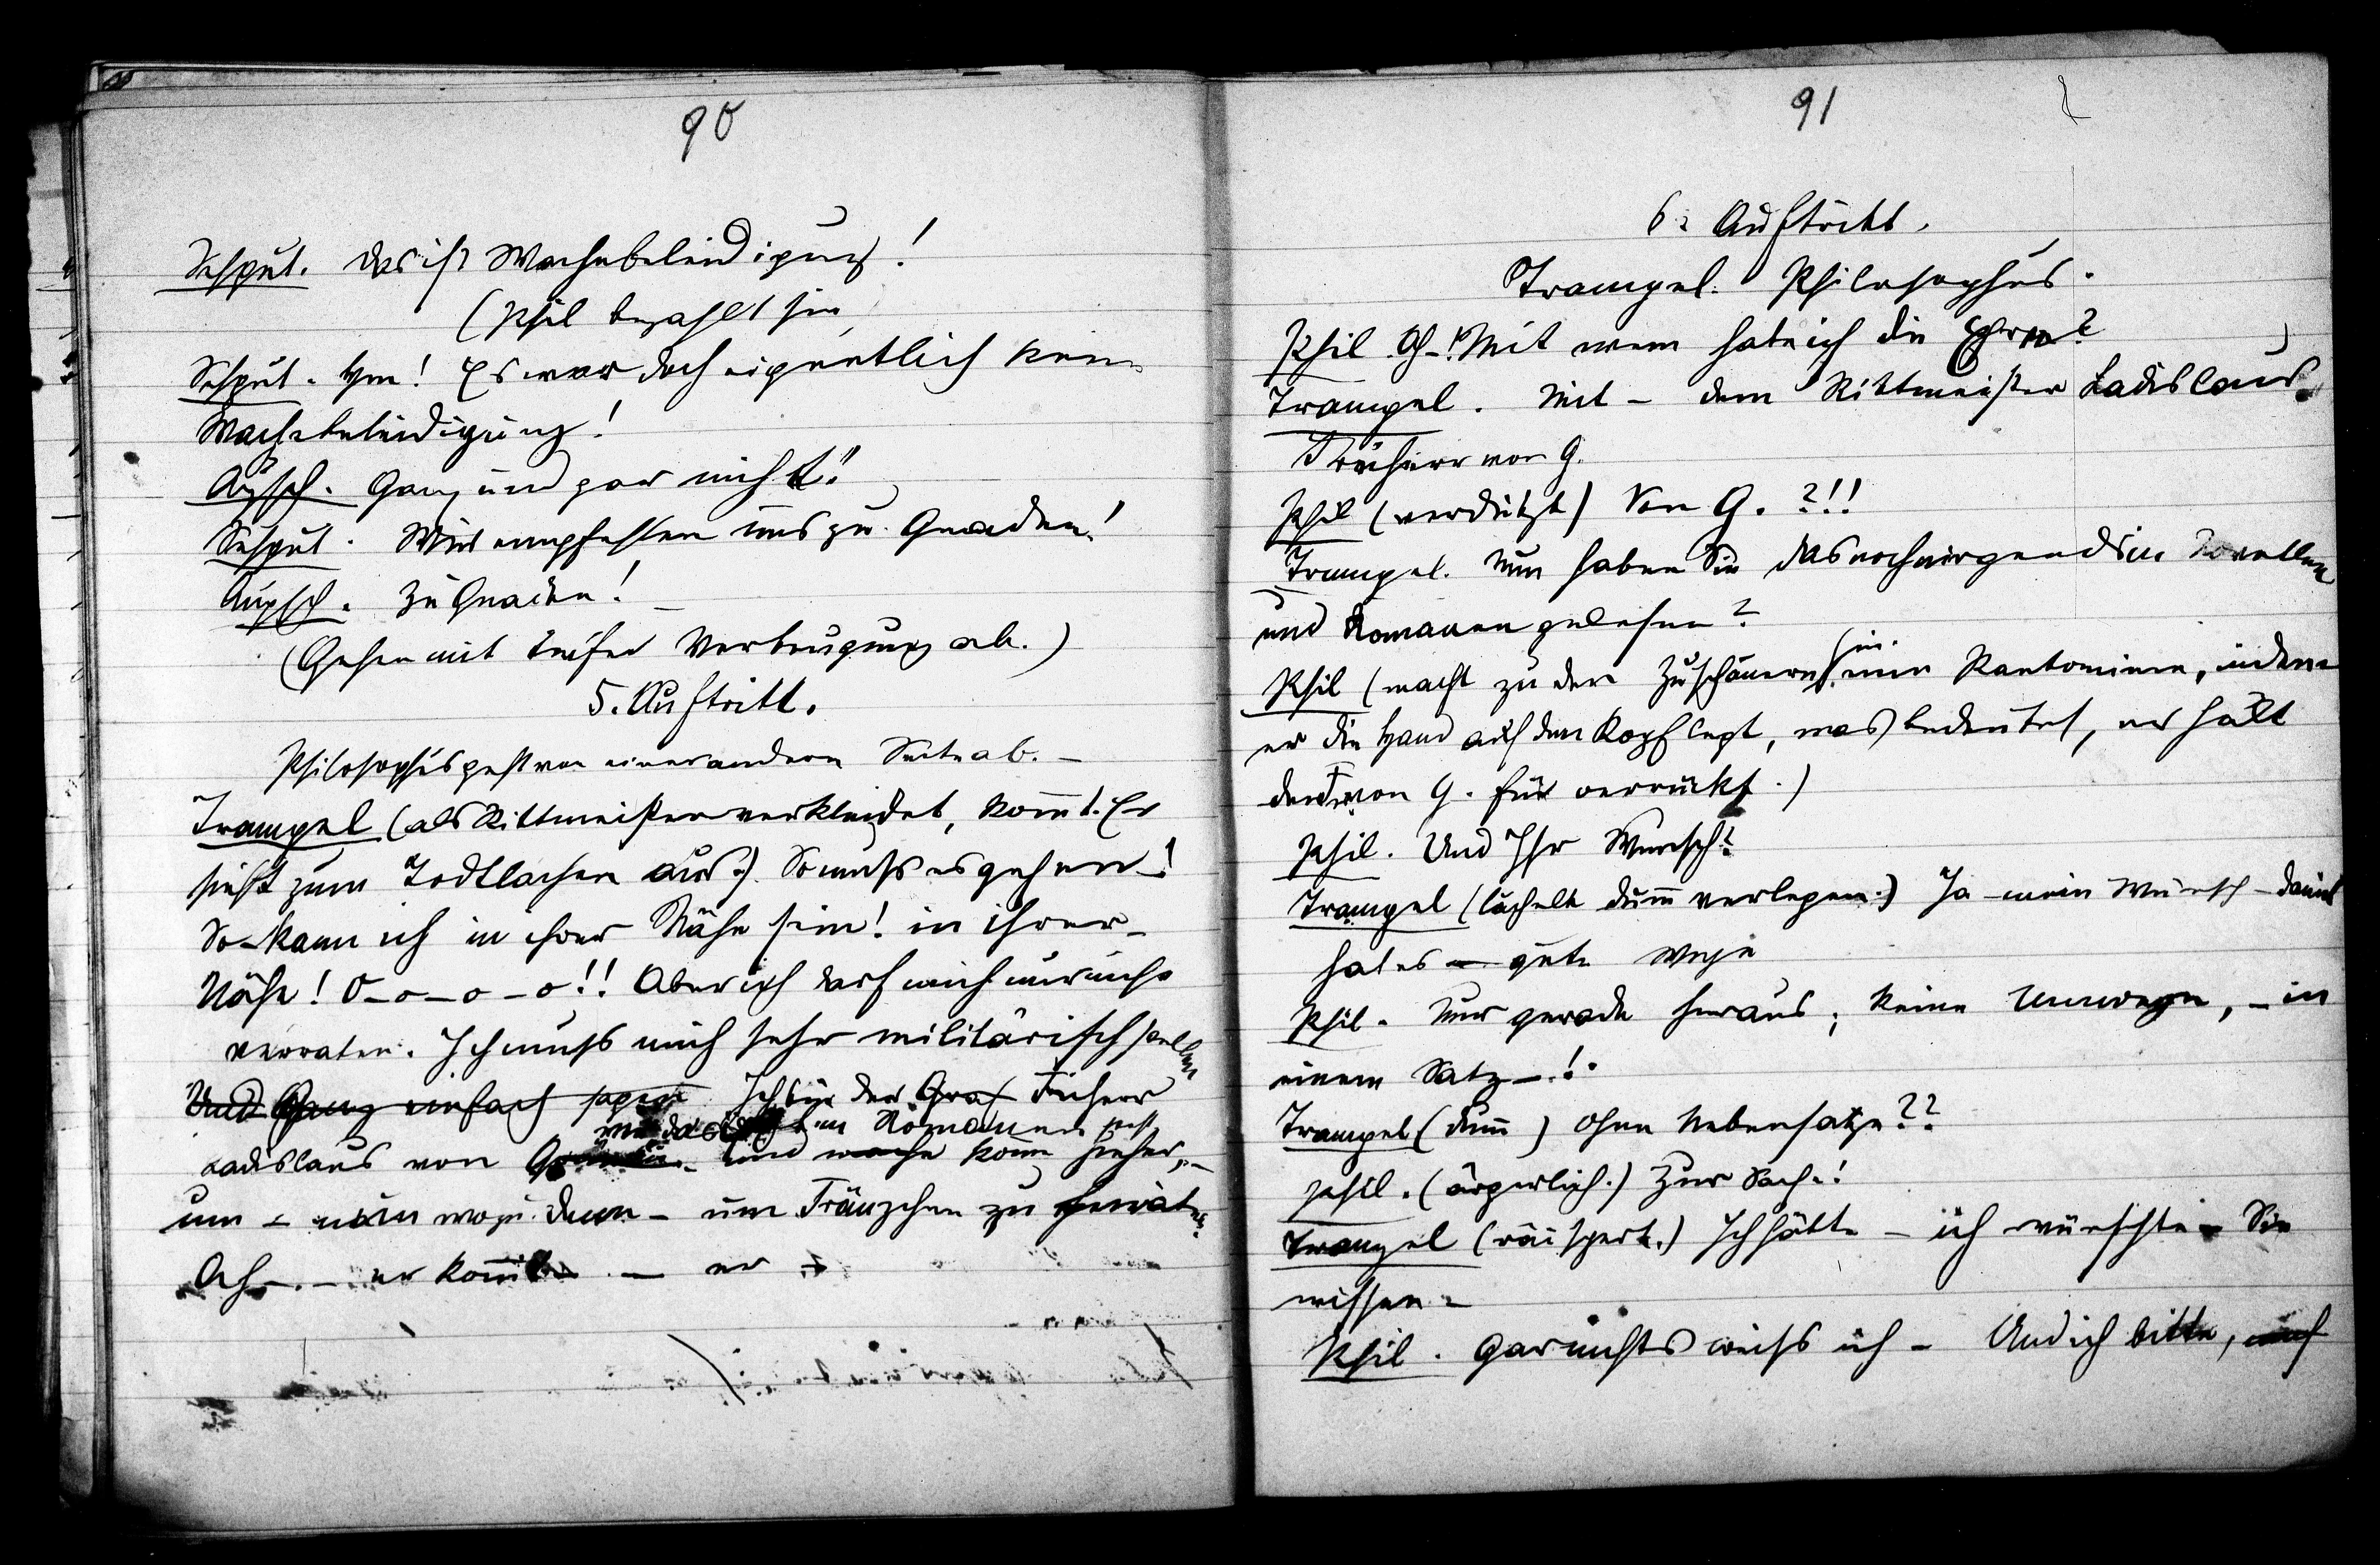 90
Schput. Das ist Wachebeleidigung!
(Phil bezahlt sie
Schput. Hm! Es war doch eigentlich kein
Wachebeleidigung!
Ganz und gar nicht!
Schput. Wir empfehlen uns zu Gnaden!
Zu Gnaden!
(Gehen mit tiefer Verbeugung ab.)
5. Auftritt.
Philosophus geht von einer andern Seite ab. –
Trampel (als Rittmeister verkleidet, kommt. Er
sieht zum Todtlachen aus.) So muss es gehen!
So kann ich in ihrer Nähe sein! in ihrer –
Nähe! O–o–o–o!! Aber ich darf mich nur nicht
verraten. Ich muss mich sehr militärisch stellen
Und Ganz einfach sagen Ich bin der Graf Freiherr
in Romanen
Ladislaus von und komm hieher, –
um – nein wozu denn – um Fränzchen zu heiraten.
Ach – – er kommt – er
91
6. Auftritt.
Trampel. Philosophus.
Phil. Oh –! Mit wem habe ich die Ehre?
Trampel. Mit – dem Rittmeister Ladislaus
Freiherr von G.
Phil (verdutzt) Von G. ?!!
Trampel. Nun haben Sie das noch nirgends in Novellen
und Romanen gelesen?
Phil (macht zu den Zuschauern hin eine Pantomime, indem
er die Hand auf den Kopf legt, was bedeutet, er hält
den Fr. von G. für verrückt.)
Phil. Und Ihr Wunsch?
Trampel (lächelt dumm verlegen.) Ja – mein Wunsch – damit
hat es – gute Wege
Phil. Nur gerade heraus; keine Umwege, – in
einem Satz –!
Trampel (dumm) Ohne Nebensätze??
Phil. (ärgerlich.) Zur Sache!
Trampel (räuspert.) Ich hätte – ich wünschte – Sie
wissen –
Phil. Gar nichts weiss ich – Und ich bitte, mich